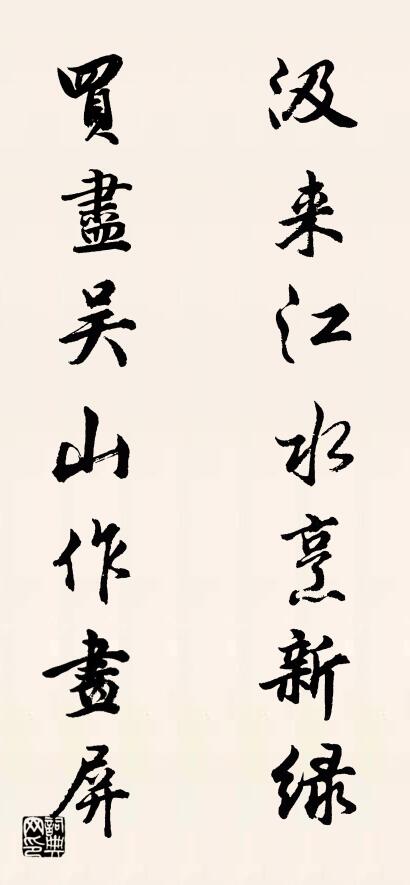 汲来江水烹新绿
買盡吴山作畫屏